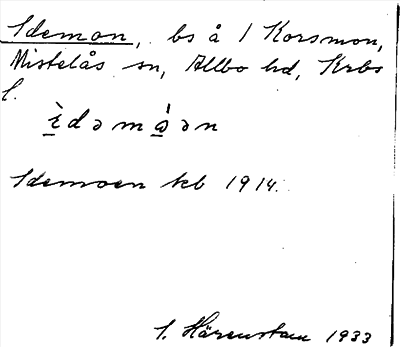 Idemon, bs å 1 Korsmon,
Mistelås sn, Allbo hd, Krbs
l.
ìdəmå̀ən
Idemoen kb 1914.
S. Härenstam 1933